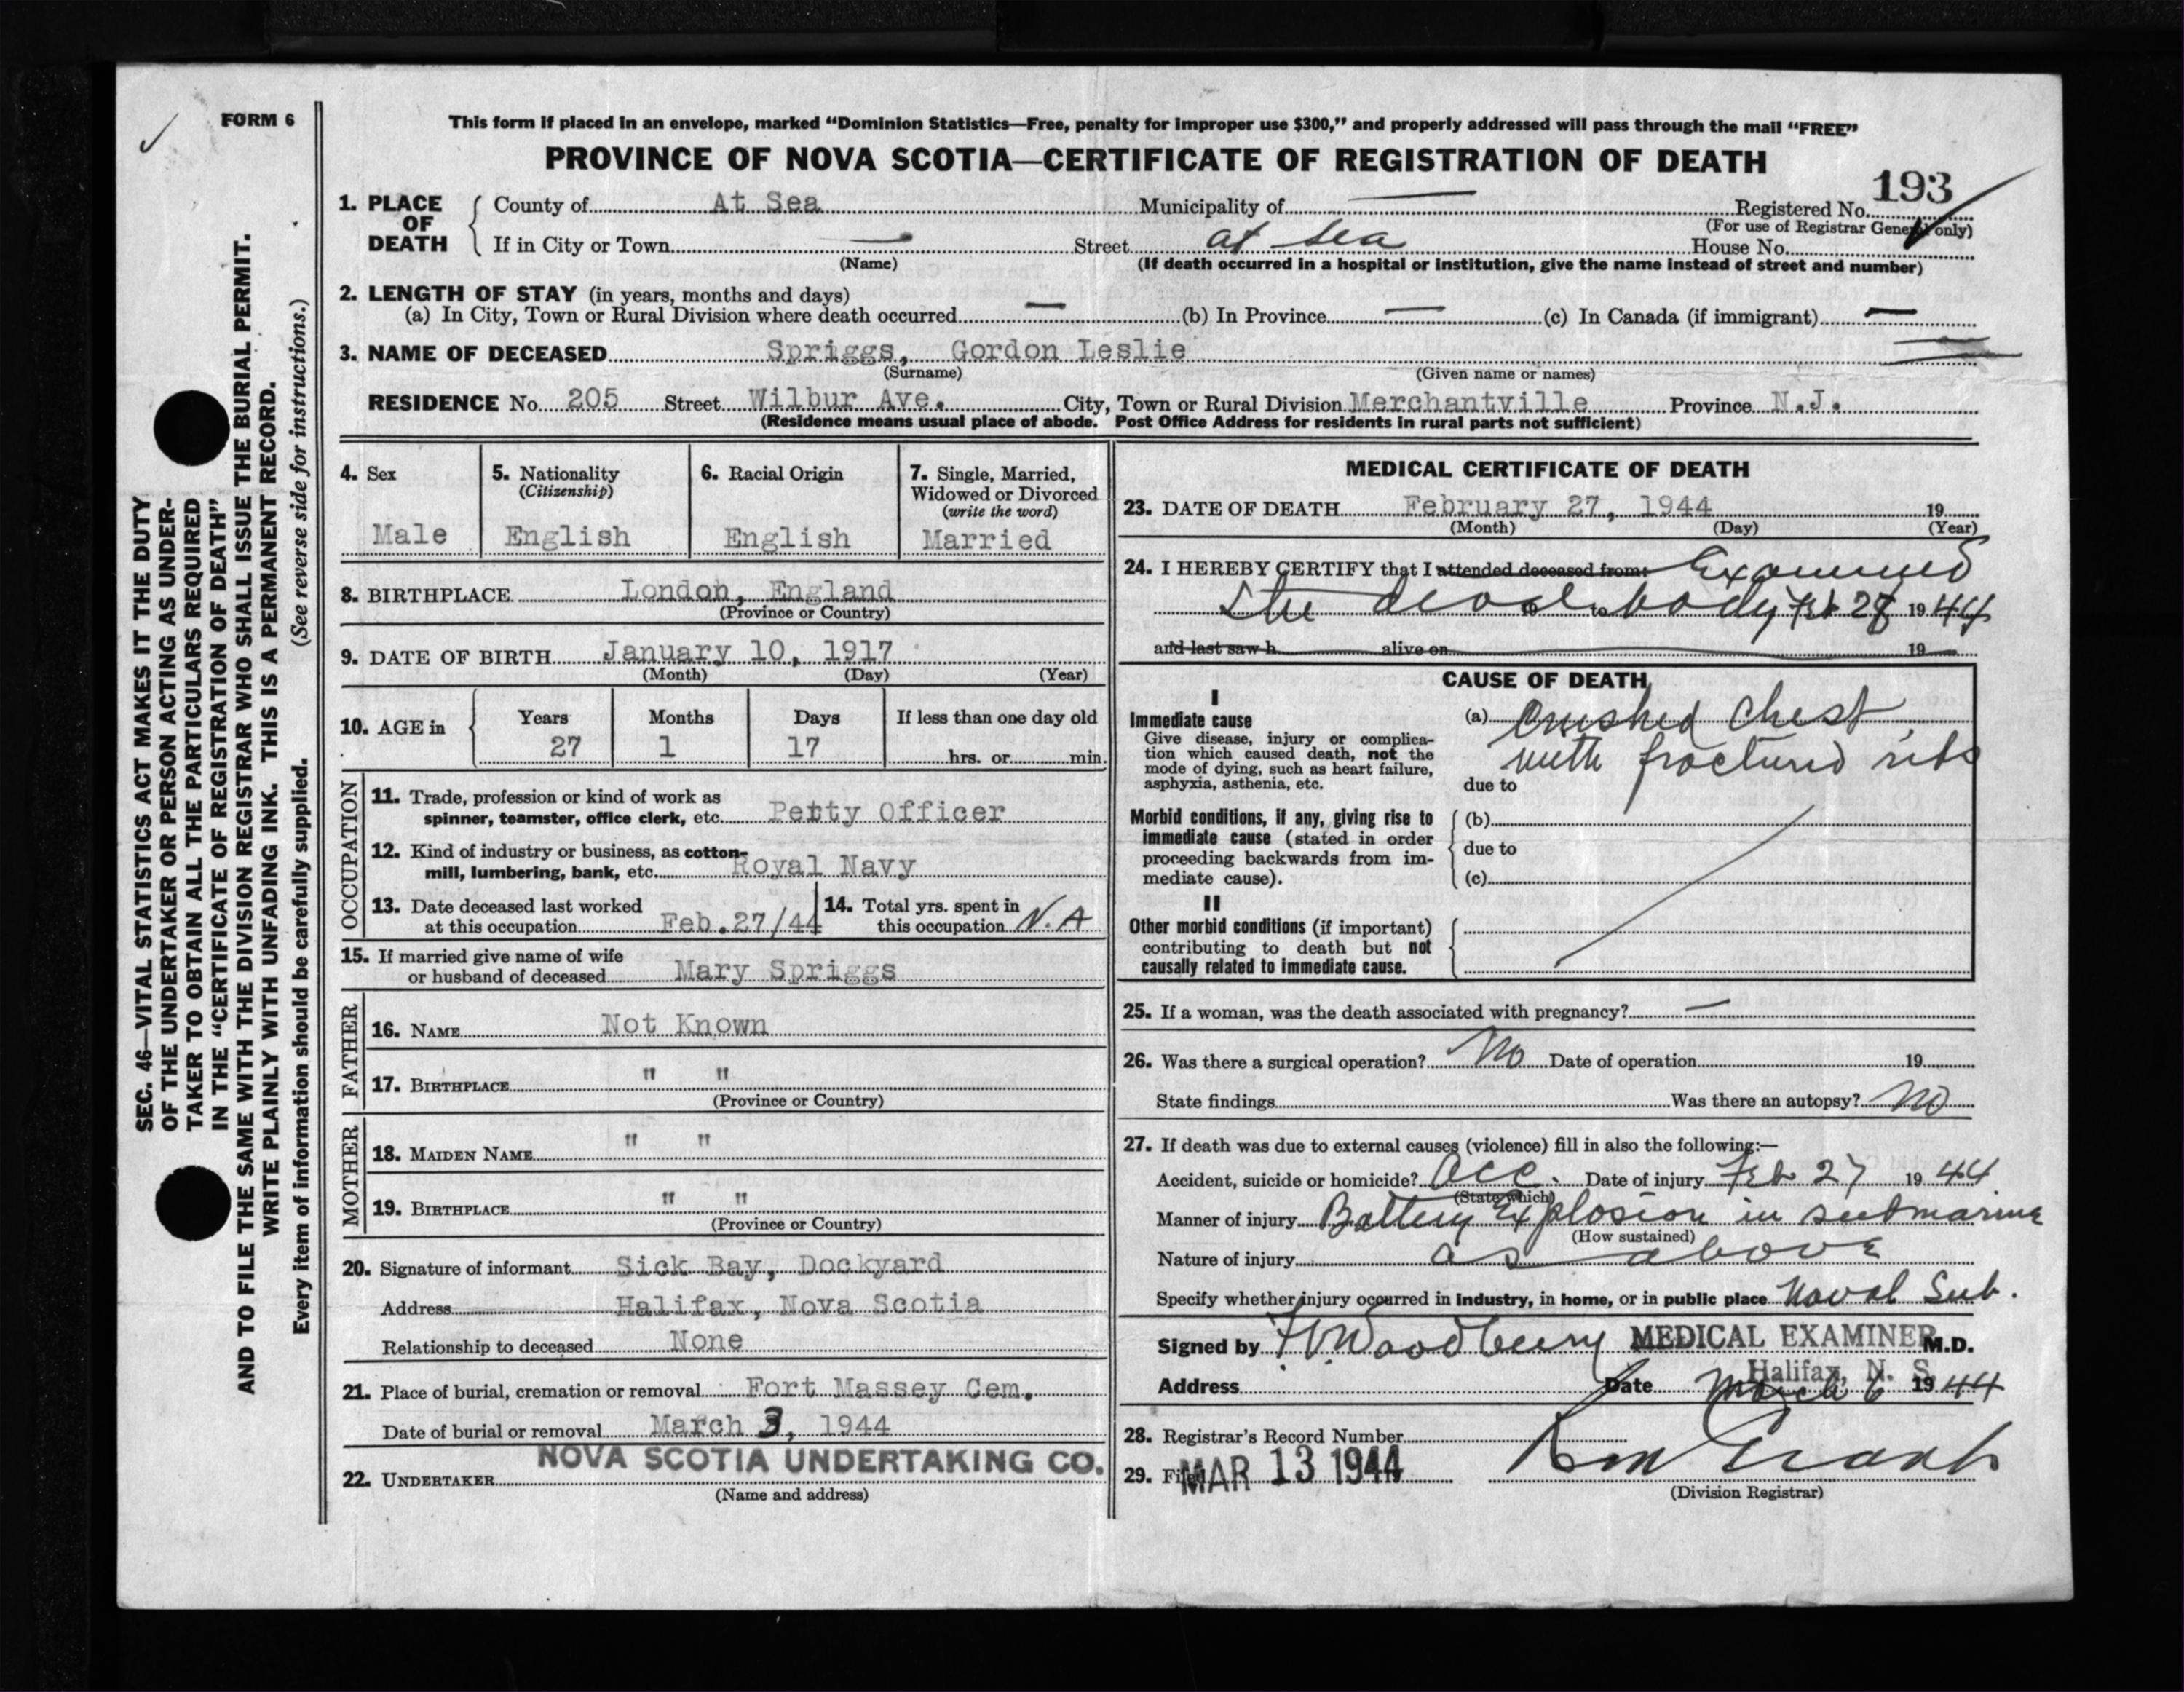 FORM 6
This form if placed in an envelope, marked “Dominion Statistics—Free, penalty for improper use $300,” and properly addressed will pass through the mail “FREE”
PROVINCE OF NOVA SCOTIA—CERTIFICATE OF REGISTRATION OF DEATH
193
1. PLACE OF DEATH
County of At Sea Municipality of — Registered No.
(For use of Registrar General only)
If in City or Town — Street at sea House No.
(Name) (If death occurred in a hospital or institution, give the name instead of street and number)
2. LENGTH OF STAY (in years, months and days)
(a) In City, Town or Rural Division where death occurred — (b) In Province — (c) In Canada (if immigrant) —
3. NAME OF DECEASED Spriggs, Gordon Leslie
(Surname) (Given name or names)
RESIDENCE No. 205 Street Wilbur Ave. City, Town or Rural Division Merchantville Province N.J.
(Residence means usual place of abode. Post Office Address for residents in rural parts not sufficient)
4. Sex
Male
5. Nationality
(Citizenship)
English
6. Racial Origin
English
7. Single, Married,
Widowed or Divorced
(write the word)
Married
8. BIRTHPLACE London, England
(Province or Country)
9. DATE OF BIRTH January 10, 1917
(Month) (Day) (Year)
10. AGE in
Years Months Days If less than one day old
27 1 17 hrs. or min.
OCCUPATION
11. Trade, profession or kind of work as
spinner, teamster, office clerk, etc. Petty Officer
12. Kind of industry or business, as cotton-
mill, lumbering, bank, etc. Royal Navy
13. Date deceased last worked
at this occupation Feb.27/44
14. Total yrs. spent in
this occupation N.A
15. If married give name of wife
or husband of deceased Mary Spriggs
FATHER
16. NAME Not Known
17. BIRTHPLACE " "
(Province or Country)
MOTHER
18. MAIDEN NAME " "
19. BIRTHPLACE " "
(Province or Country)
20. Signature of informant Sick Bay, Dockyard
Address Halifax, Nova Scotia
Relationship to deceased None
21. Place of burial, cremation or removal Fort Massey Cem.
Date of burial or removal March 3, 1944
NOVA SCOTIA UNDERTAKING CO.
22. UNDERTAKER
(Name and address)
MEDICAL CERTIFICATE OF DEATH
23. DATE OF DEATH February 27, 1944 19
(Month) (Day) (Year)
24. I HEREBY CERTIFY that I attended deceased from: Examined
the dead body Feb 28 1944
and last saw h alive on 19
CAUSE OF DEATH
I
Immediate cause
Give disease, injury or complica-
tion which caused death, not the
mode of dying, such as heart failure,
asphyxia, asthenia, etc.
(a) Crushed Chest
with fractured ribs
due to
Morbid conditions, if any, giving rise to
immediate cause (stated in order
proceeding backwards from im-
mediate cause).
(b)
due to
(c)
II
Other morbid conditions (if important)
contributing to death but not
causally related to immediate cause.
25. If a woman, was the death associated with pregnancy? —
26. Was there a surgical operation? No Date of operation 19
State findings Was there an autopsy? no
27. If death was due to external causes (violence) fill in also the following:—
Accident, suicide or homicide? Acc. Date of injury Feb 27 1944
(State which)
Manner of injury Battery Explosion in submarine
(How sustained)
Nature of injury as above
Specify whether injury occurred in industry, in home, or in public place Naval Sub.
Signed by Woodbury MEDICAL EXAMINER M.D.
Halifax, N. S.
Address Date March 6 1944
28. Registrar's Record Number
29. Filed MAR 13 1944
(Division Registrar)
SEC. 46—VITAL STATISTICS ACT MAKES IT THE DUTY
OF THE UNDERTAKER OR PERSON ACTING AS UNDER-
TAKER TO OBTAIN ALL THE PARTICULARS REQUIRED
IN THE “CERTIFICATE OF REGISTRATION OF DEATH”
AND TO FILE THE SAME WITH THE DIVISION REGISTRAR WHO SHALL ISSUE THE BURIAL PERMIT.
WRITE PLAINLY WITH UNFADING INK. THIS IS A PERMANENT RECORD.
Every item of information should be carefully supplied. (See reverse side for instructions.)